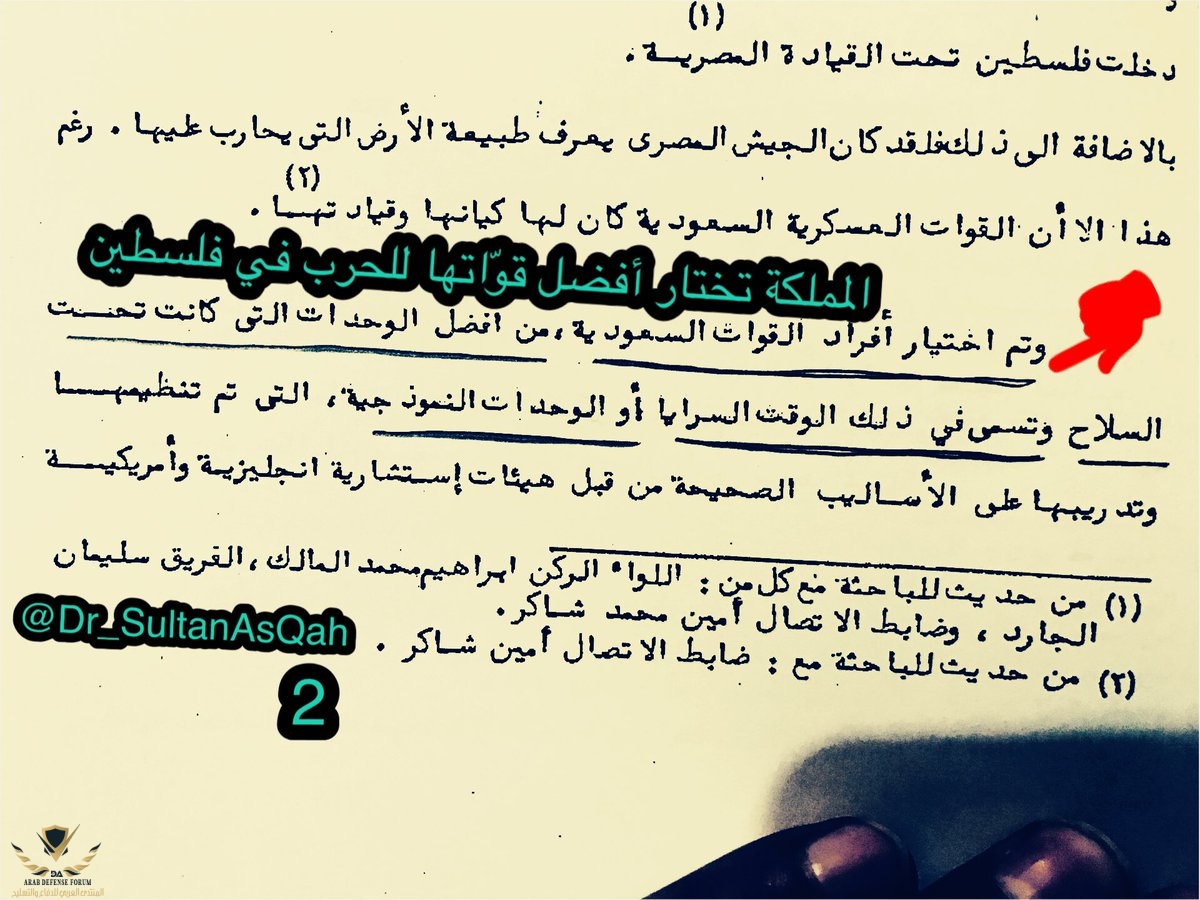 (١)
دخلت فلسطين تحت القيادة المصريـة .
بالاضافة الى ذلك فلقد كان الجيش المصرى يعرف طبيعة الأرض التى يحارب عليها . رغم
(٢)
هذا الا أن القوات العسكرية السعودية كان لها كيانها وقيادتهـا .
المملكة تختار أفضل قوّاتها للحرب في فلسطين
وتم اختيار أفراد القوات السعودية ،من افضل الوحدات التى كانت تحـت
السلاح وتسمى في ذلك الوقت السرايا أو الوحدات النموذجية ، التى تم تنظيمهـا
وتدريبها على الأساليب الصحيحة من قبل هيئات إستشارية انجليزية وأمريكيـة
(١) من حديث للباحثة مع كل من : اللواء الركن ابراهيم محمد المالك ، الفريق سليمان
الجارد ، وضابط الاتصال أمين محمد شاكر .
(٢) من حديث للباحثة مع : ضابط الاتصال أمين شاكر .
@Dr_SultanAsQah
2
DA
ARAB DEFENSE FORUM
المنتدى العربي للدفاع والتسليح